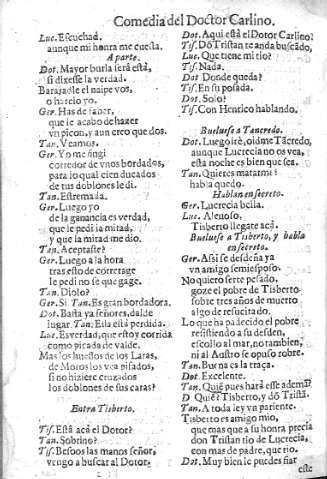 Comedia del Doctor Carlino.
Luc. Escuchad,
aunque mi honra me cuesta.
A parte.
Dot. Mayor burla será está,
si dixesse la verdad.
Barajasle el naipe vos,
o harelo yo.
Ger. Has de saber,
que le acabo de hazer
vn picon, y aun creo que dos.
Tan. Veamos.
Ger. Yo me fingi
corredor de vnos bordados,
para lo qual cien ducados
de tus doblones le di.
Tan. Estremada.
Ger. Luego yo
de la ganancia es verdad,
que le pedi la mitad,
y que la mitad me dio.
Tan. Aceptaste?
Ger. Luego a la hora
tras esto de corretage
le pedi no se que gage.
Tan. Diolo?
Ger. Si. Tan. Es gran bordadora.
Dot. Basta ya señores, dalde
lugar. Tan. Ella está perdida.
Luc. Es verdad, que estoy corrida
como picada de valde.
Mas los huessos de los Laras,
de Moros los vea pisados,
si no hiziere cruzados
los doblones de sus caras?
Entra Tisberto.
Tis. Está acà el Dotor?
Tan. Sobrino?
Tis. Besoos las manos señor,
vengo a buscar al Dotor.
Dot. Aqui está el Dotor Carlino?
Tis. Dõ Tristan te anda buscãdo,
Luc. Que tiene mi tio?
Tis. Nada.
Dot. Donde queda?
Tis. En su posada.
Dot. Solo?
Tis. Con Henrico hablando.
Buelvese a Tancredo.
Dot. Luego irè, oìdme Tãcredo,
aunque Lucrecia no os vea,
esta noche es bien que sea.
Tan. Quieres matarme?
habla quedo.
Hablan en secreto.
Ger. Lucrecia bella.
Luc. Aleuoso,
Tisberto llegate acà.
Bueluese a Tisberto, y habla
en secreto.
Ger. Assi se desdeña ya
vn amigo semiesposo.
No quiero serte pesado,
goze el pobre de Tisberto
sobre tres años de muerto
algo de resucitado.
Lo que ha padecido el pobre
resistiendo a su desden,
escollo al mar, no tambien,
ni al Austro se opuso robre.
Tan. Buena es la traça.
Dot. Excelente.
Tan. Quiẽ pues hará esse ademã?
D. Quiẽ? Tisberto, y dõ Tristã.
Tan. A toda ley vn pariente.
Tisberto es amigo mio,
que mas que a su honra precia
don Tristan tio de Lucrecia,
con mas de padre, que tio.
Dot. Muy bien le puedes fiar
este